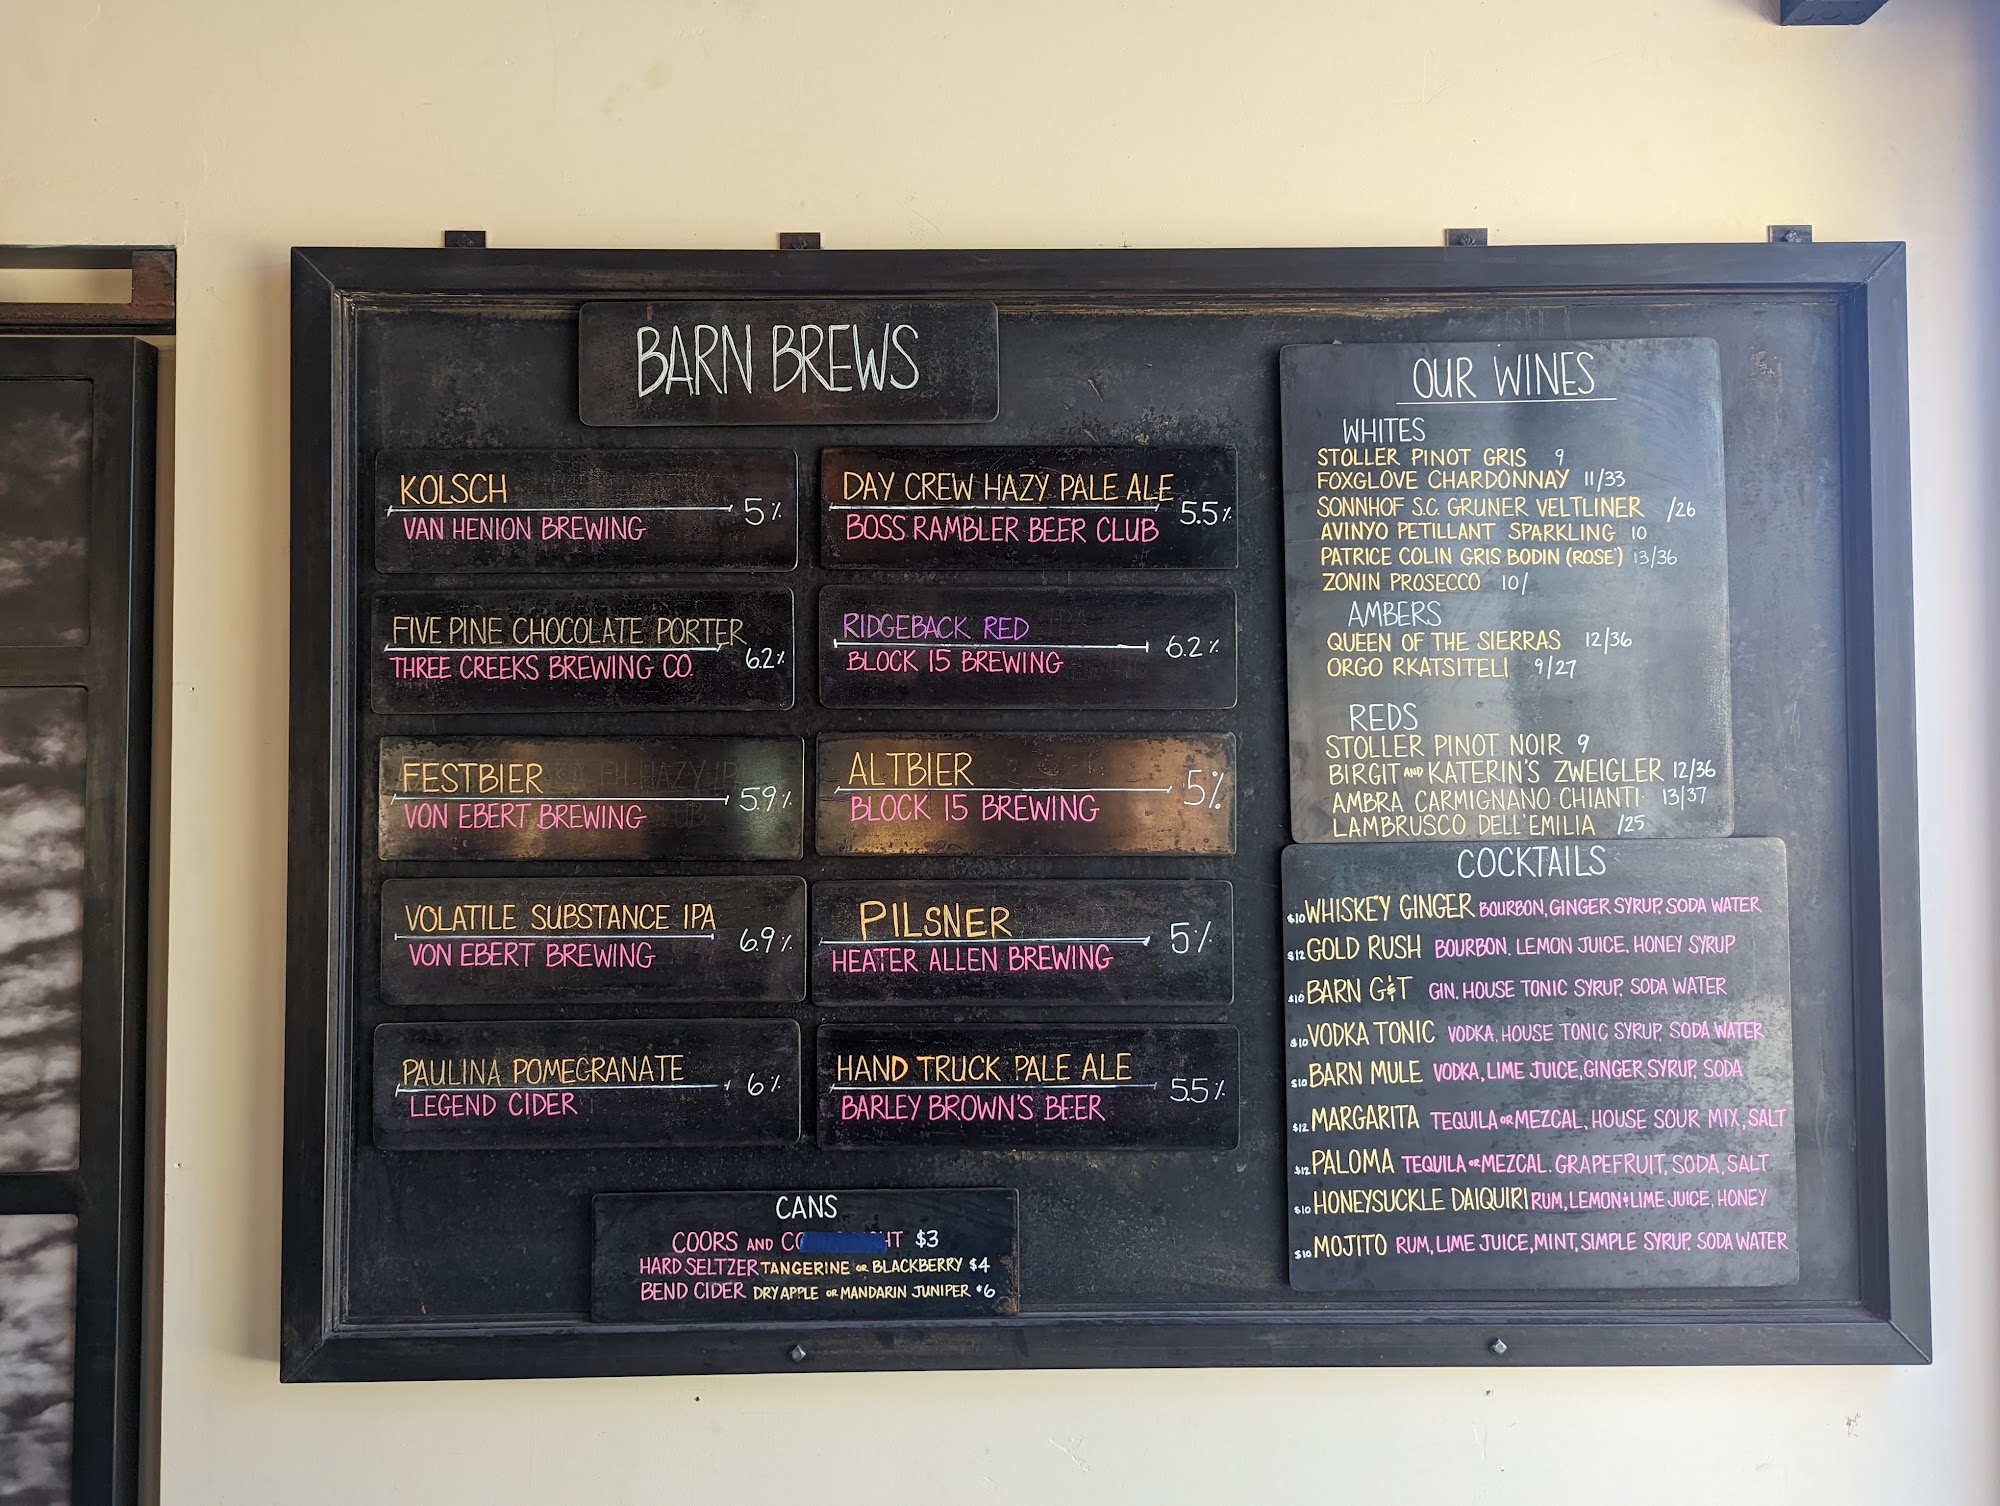 BARN BREWS
KOLSCH
VAN HENION BREWING
5%
DAY CREW HAZY PALE ALE
BOSS RAMBLER BEER CLUB
5.5%
FIVE PINE CHOCOLATE PORTER
THREE CREEKS BREWING CO.
6.2%
RIDGEBACK RED
BLOCK 15 BREWING
6.2%
FESTBIER
VON EBERT BREWING
5.9%
ALTBIER
BLOCK 15 BREWING
5%
VOLATILE SUBSTANCE IPA
VON EBERT BREWING
6.9%
PILSNER
HEATER ALLEN BREWING
5%
PAULINA POMEGRANATE
LEGEND CIDER
6%
HAND TRUCK PALE ALE
BARLEY BROWN'S BEER
5.5%
CANS
COORS AND $3
HARD SELTZER TANGERINE OR BLACKBERRY $4
BEND CIDER DRY APPLE OR MANDARIN JUNIPER $6
OUR WINES
WHITES
STOLLER PINOT GRIS 9
FOXGLOVE CHARDONNAY 11/33
SONNHOF S.C. GRUNER VELTLINER /26
AVINYO PETILLANT SPARKLING 10
PATRICE COLIN GRIS BODIN (ROSE') 13/36
ZONIN PROSECCO 10/
AMBERS
QUEEN OF THE SIERRAS 12/36
ORGO RKATSITELI 9/27
REDS
STOLLER PINOT NOIR 9
BIRGIT AND KATERIN'S ZWEIGLER 12/36
AMBRA CARMIGNANO CHIANTI 13/37
LAMBRUSCO DELL'EMILIA /25
COCKTAILS
$10 WHISKEY GINGER BOURBON, GINGER SYRUP, SODA WATER
$12 GOLD RUSH BOURBON, LEMON JUICE, HONEY SYRUP
$10 BARN G&T GIN, HOUSE TONIC SYRUP, SODA WATER
$10 VODKA TONIC VODKA, HOUSE TONIC SYRUP, SODA WATER
$10 BARN MULE VODKA, LIME JUICE, GINGER SYRUP, SODA
$12 MARGARITA TEQUILA OR MEZCAL, HOUSE SOUR MIX, SALT
$12 PALOMA TEQUILA OR MEZCAL, GRAPEFRUIT, SODA, SALT
$10 HONEYSUCKLE DAIQUIRI RUM, LEMON & LIME JUICE, HONEY
$10 MOJITO RUM, LIME JUICE, MINT, SIMPLE SYRUP, SODA WATER